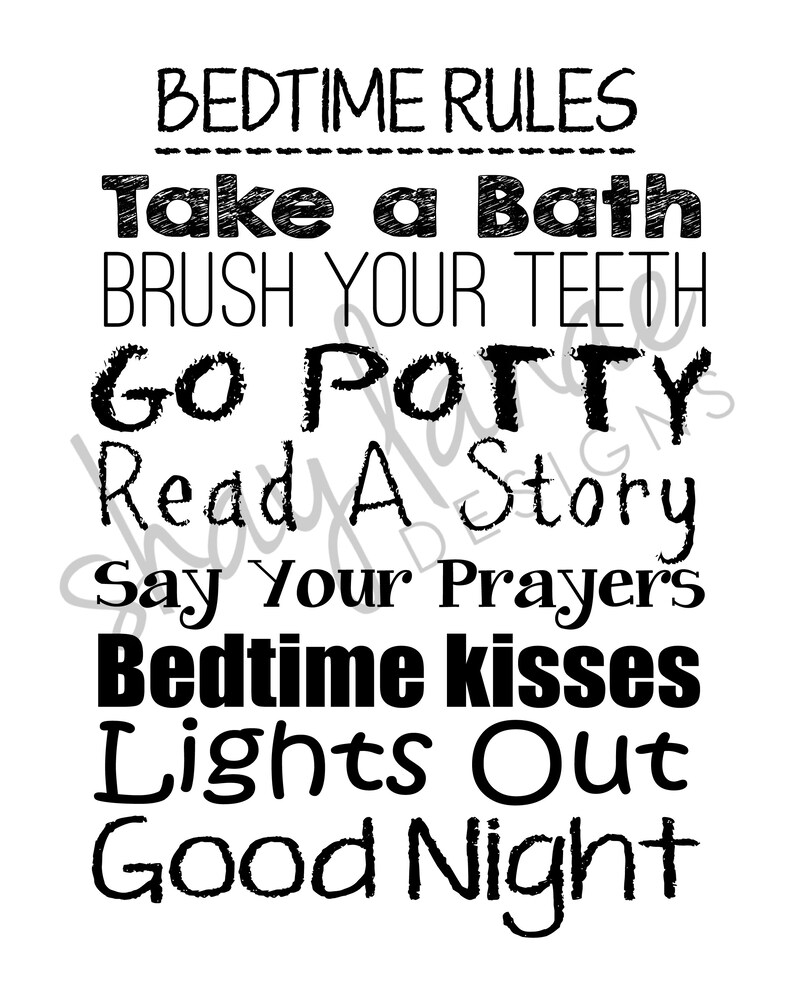 BEDTIME RULES
Take a Bath
BRUSH YOUR TEETH
GO POTTY
Read A Story
Say Your Prayers
Bedtime kisses
Lights Out
Good Night
shay lanae
DESIGNS